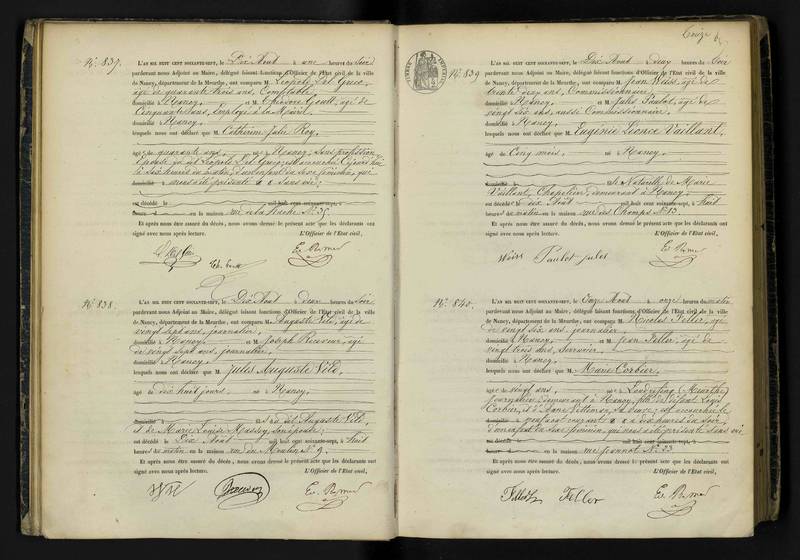 N°. 837.
L'AN MIL HUIT CENT SOIXANTE-SEPT, le Dix Août à une heures du Soir
pardevant nous Adjoint au Maire, délégué faisant fonctions d'Officier de l'Etat civil de la ville
de Nancy, département de la Meurthe, ont comparu M. Léopold Del Greco,
âgé de quarante trois ans, Comptable,
domicilié à Nancy, et M. Théodore Goutt, âgé de
Cinquante ans, Employé à la Mairie,
domicilié à Nancy,
lesquels nous ont déclaré que M. Catherine Julie Roy,
âgée de quarante ans, née à Nancy, sans profession,
Epouse du dit Léopold Del Greco, est accouchée Cejourd'hui
à Six heures du matin, d'un enfant du sexe féminin, qui
nous a été présenté Sans vie,
est décédé le mil huit cent soixante-sept, à
heures en la maison rue de la Hache N°. 35.
Et après nous être assuré du décès, nous avons dressé le présent acte que les déclarants ont
signé avec nous après lecture. L'Officier de l'Etat civil,
N°. 838.
L'AN MIL HUIT CENT SOIXANTE-SEPT, le Dix Août à deux heures du Soir
pardevant nous Adjoint au Maire, délégué faisant fonctions d'Officier de l'Etat civil de la ville
de Nancy, département de la Meurthe, ont comparu M. Auguste Vélé, âgé de
vingt sept ans, journalier,
domicilié à Nancy, et M. Joseph Receveur, âgé
de vingt sept ans, journalier,
domicilié à Nancy,
lesquels nous ont déclaré que M. Jules Auguste Vélé,
âgé de dix huit jours, né à Nancy,
domicilié à fils du dit Auguste Vélé,
et de Marie Louise Massey, son épouse,
est décédé le Dix Août mil huit cent soixante-sept, à huit
heures du matin en la maison rue du Moulin N°. 9.
Et après nous être assuré du décès, nous avons dressé le présent acte que les déclarants ont
signé avec nous après lecture. L'Officier de l'Etat civil,
N°. 839
L'AN MIL HUIT CENT SOIXANTE-SEPT, le Dix Août à deux heures du Soir
pardevant nous Adjoint au Maire, délégué faisant fonctions d'Officier de l'Etat civil de la ville
de Nancy, département de la Meurthe, ont comparu M. Jean Weiss, âgé de
trente deux ans, Commissionnaire,
domicilié à Nancy, et M. Jules Paulot, âgé de
vingt six ans, aussi Commissionnaire,
domicilié à Nancy,
lesquels nous ont déclaré que Eugénie Léonie Vaillant,
âgé de Cinq mois, né à Nancy,
domicilié à fille Naturelle de Marie
Vaillant, Chapelière, demeurant à Nancy,
est décédé le dix Août mil huit cent soixante-sept, à huit
heures du matin en la maison rue des Champs N°. 13.
Et après nous être assuré du décès, nous avons dressé le présent acte que les déclarants ont
signé avec nous après lecture. L'Officier de l'Etat civil,
Weiss Paulot jules
N°. 840.
L'AN MIL HUIT CENT SOIXANTE-SEPT, le Onze Août à onze heures du matin
pardevant nous Adjoint au Maire, délégué faisant fonctions d'Officier de l'Etat civil de la ville
de Nancy, département de la Meurthe, ont comparu M. Nicolas Feller, âgé
de vingt six ans, journalier,
domicilié à Nancy, et M. Jean Feller, âgé de
vingt trois ans, Serrurier,
domicilié à Nancy,
lesquels nous ont déclaré que M. Marie Corbier,
âgée de vingt ans, née à (Meurthe)
journalière, demeurant à Nancy, fille de défunt Louis
Corbier, et à Anne sa veuve; est accouchée le
courant à dix heures du soir,
d'un enfant du sexe féminin, qui nous a été présenté Sans vie
est décédé le mil huit cent soixante-sept, à
heures en la maison rue Jeannot N°. 33.
Et après nous être assuré du décès, nous avons dressé le présent acte que les déclarants ont
signé avec nous après lecture. L'Officier de l'Etat civil,
Feller